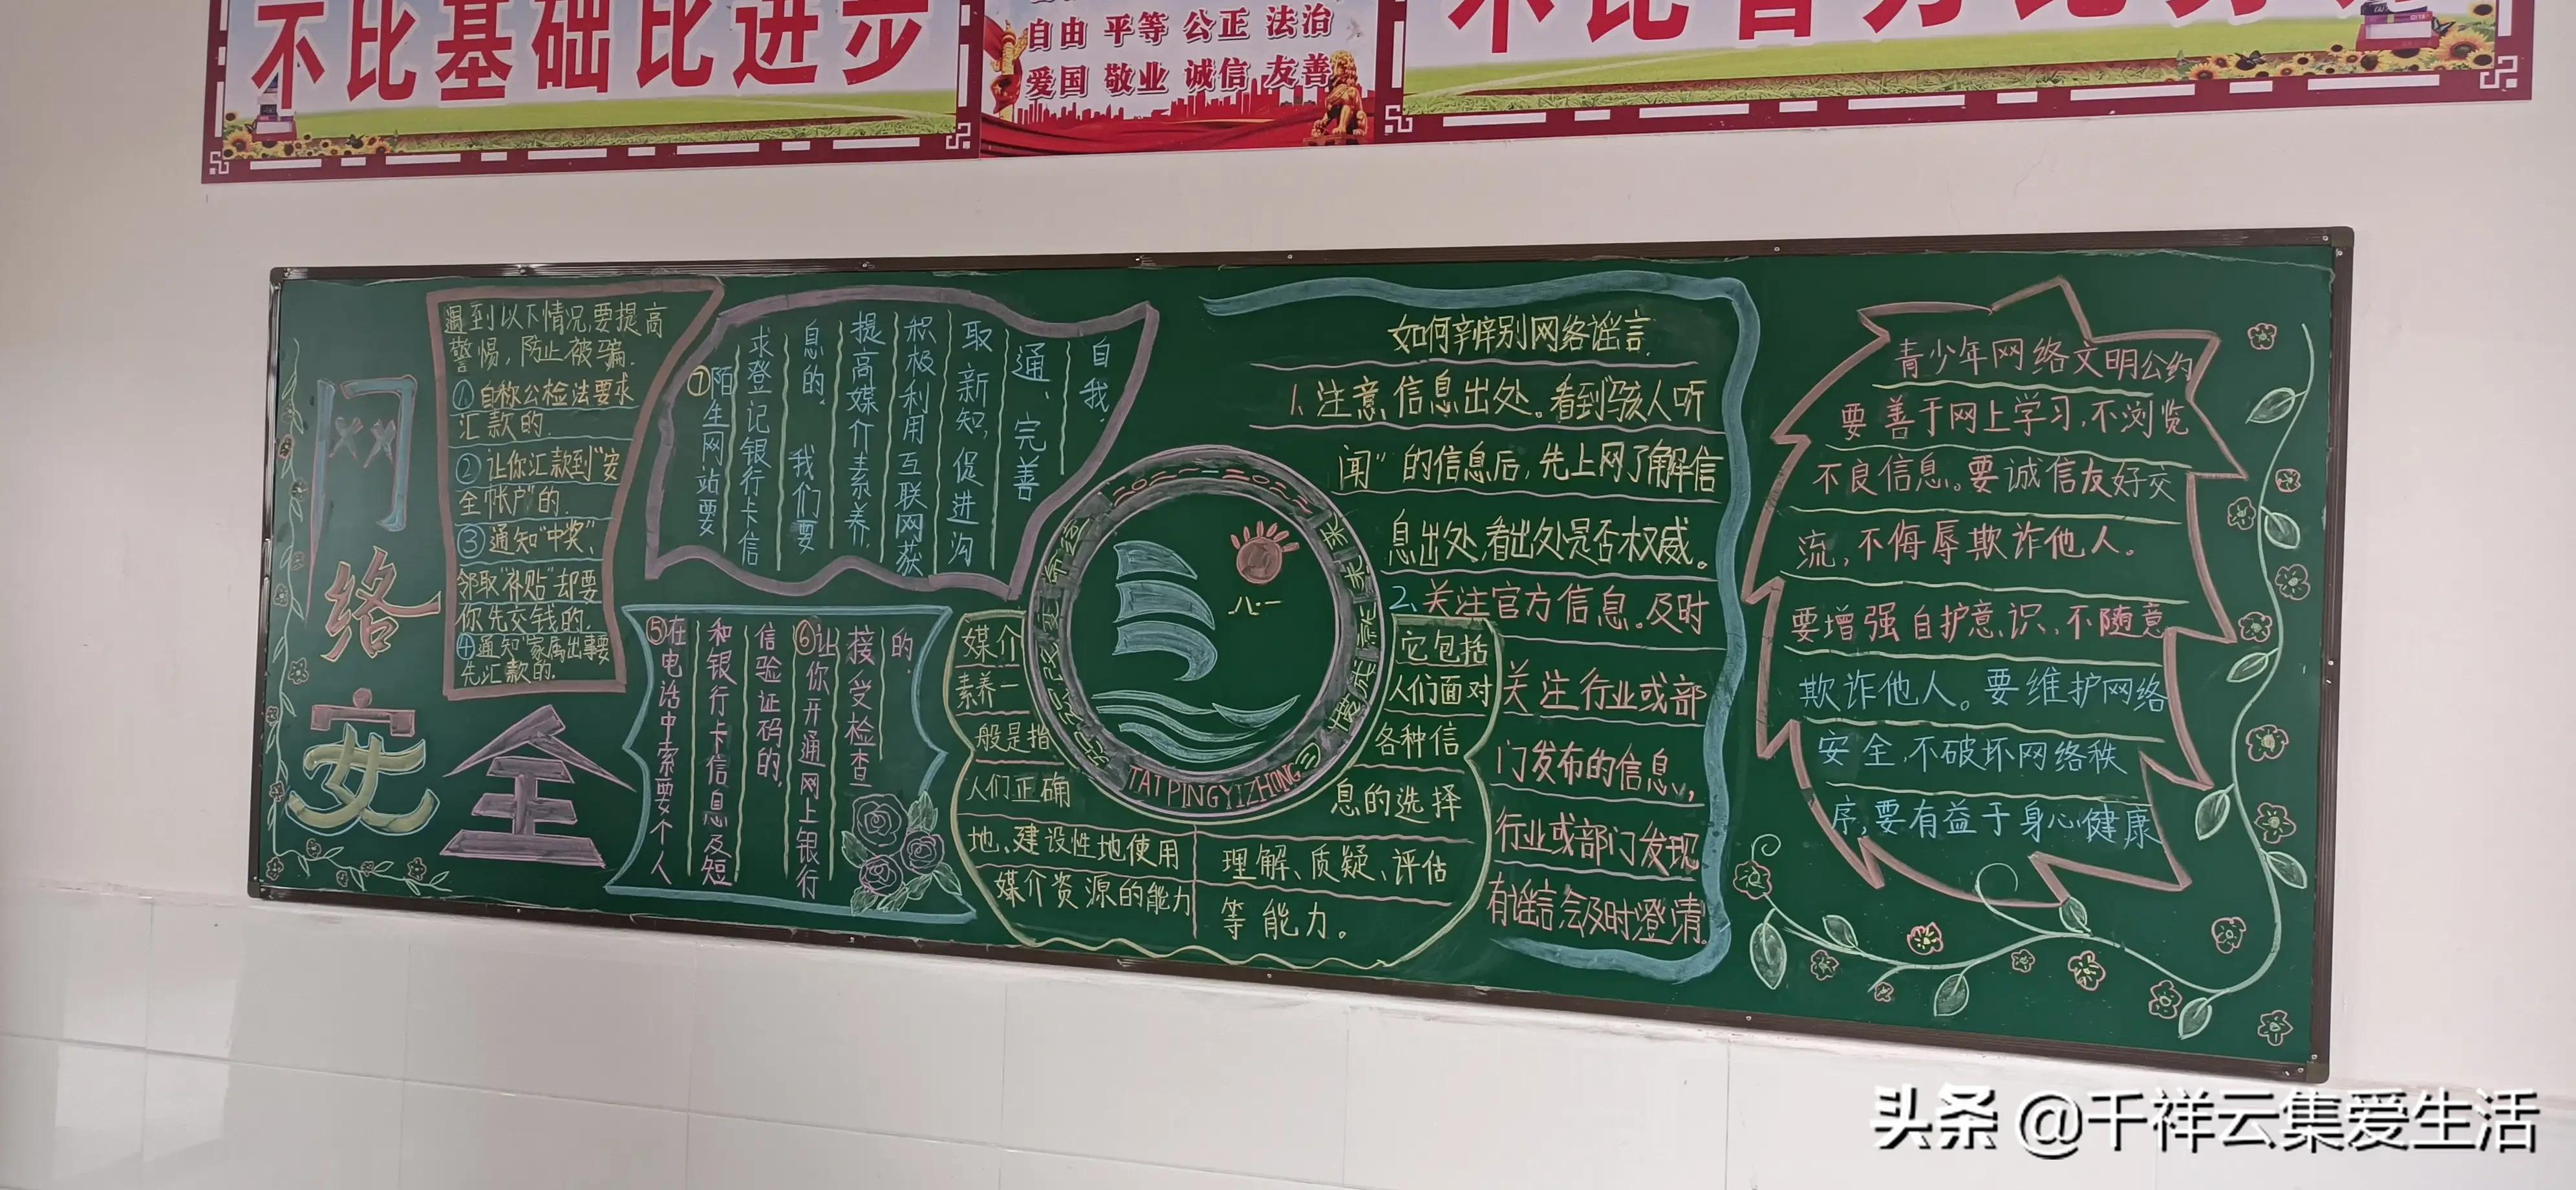 不比基础比进步
自由 平等 公正 法治
爱国 敬业 诚信 友善
网络安全
遇到以下情况,要提高
警惕,防止被骗.
①自称公检法要求
汇款的.
②让你汇款到"安
全帐户"的.
③通知"中奖"、
领取"补贴"却要
你先交钱的.
④通知"家属出事要
先汇款的.
⑤在电话中索要个人
和银行卡信息及短
信验证码的,
⑥让你开通网上银行
接受检查
的.
⑦陌生网站要
求登记银行卡信
息的. 我们要
提高媒介素养,
积极利用互联网获
取新知,促进沟
通、完善
自我.
八·一
TAIPINGYIZHONG
媒介
素养一
般是指
人们正确
地、建设性地使用
媒介资源的能力
它包括
人们面对
各种信
息的选择
理解、质疑、评估
等能力。
如何辨别网络谣言
1、注意信息出处。看到"骇人听
闻"的信息后,先上网了解信
息出处,看出处是否权威。
2、关注官方信息。及时
关注行业或部
门发布的信息,
行业或部门发现
有谣言会及时澄清.
青少年网络文明公约
要善于网上学习,不浏览
不良信息。要诚信友好交
流,不侮辱欺诈他人。
要增强自护意识,不随意
欺诈他人。要维护网络
安全,不破坏网络秩
序,要有益于身心健康
头条 @千祥云集爱生活